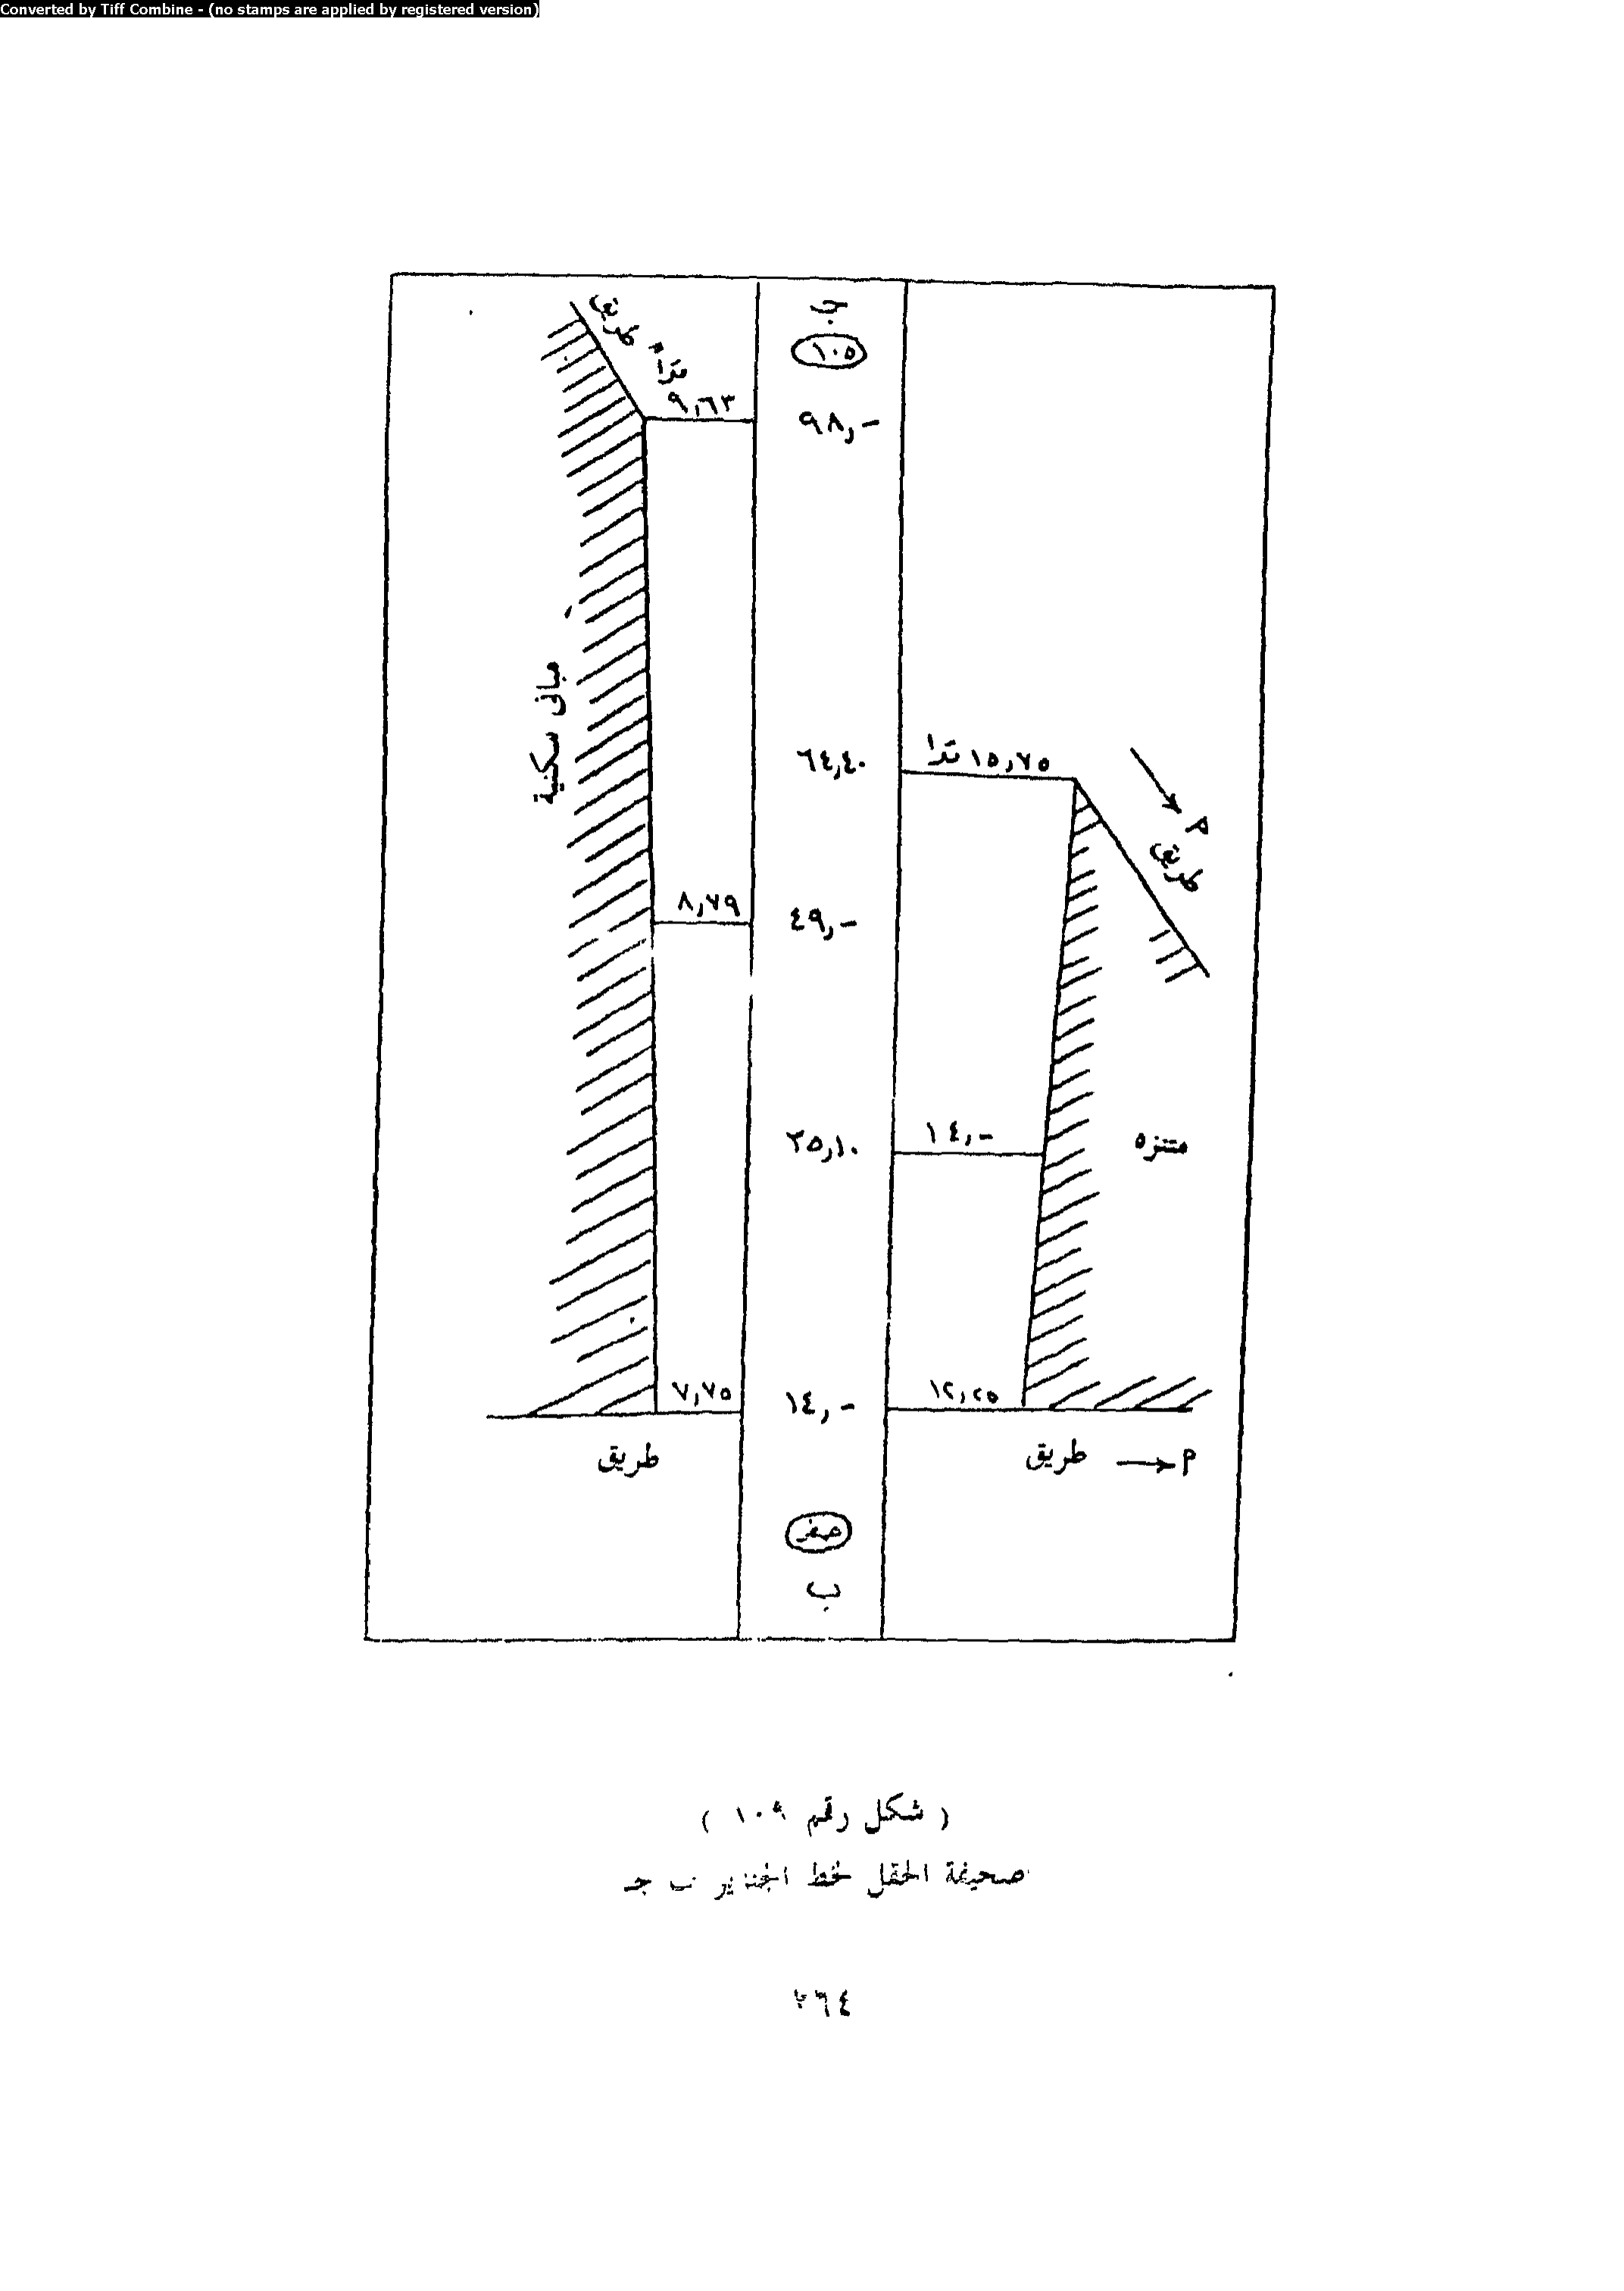 Converted by Tiff Combine - (no stamps are applied by registered version)
جـ
١٠٥
طريق
٩,٦٣
٩٨,-
مبانى سكنية
٦٤,٤٠
١٥,٧٥
م
طريق
٨,٧٩
٤٩,-
٢٥,١٠
١٤,-
متنزه
٧,٧٥
١٤,-
١٢,٢٥
طريق
طريق
م
صفر
ب
( شكل رقم ١٠٩ )
صحيفة الحقل لخط الجنزير ب جـ
٢٦٤